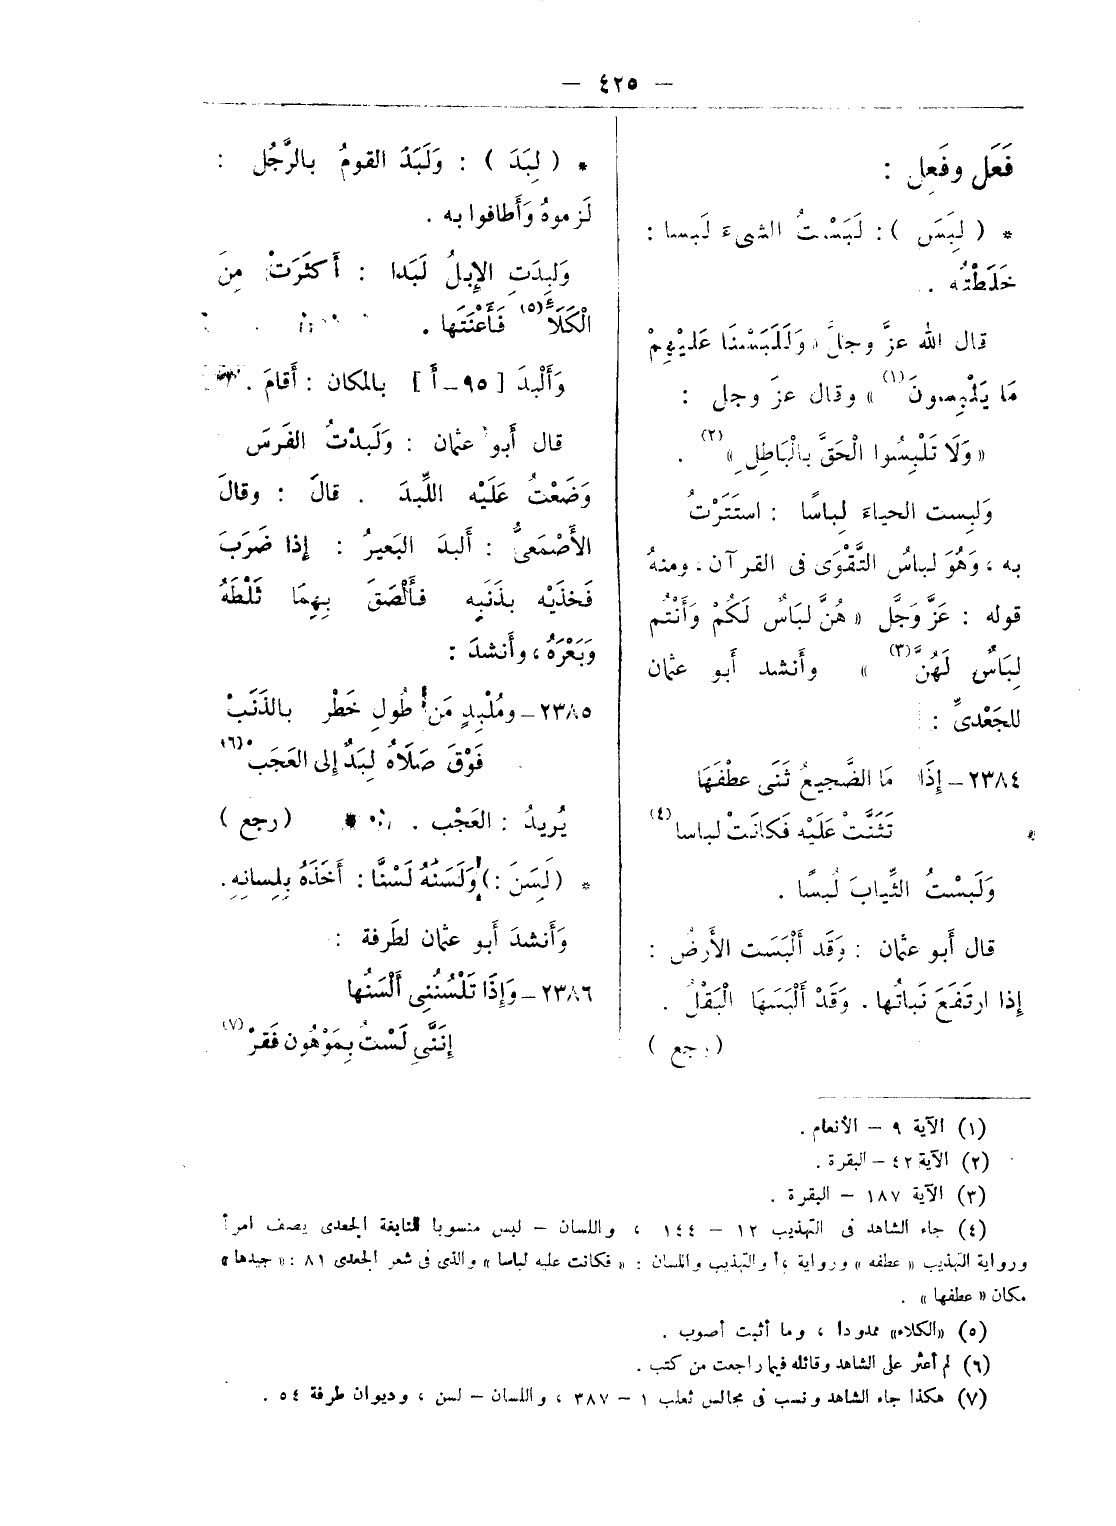 — ٤٢٥ —
فَعَل وفَعِل :
* ( لبِسَ ) : لَبَسْتُ الشىءَ لَبسا :
خَلَطْتُه .
قال الله عزَّ وجلَّ « وَلَلَبَسْنَا عَلَيْهِمْ
مَا يَلْبِسونَ (١) » وقال عزَ وجل :
« وَلَا تَلْبِسُوا الْحَقَّ بِالْبَاطِلِ » (٢) .
وَلبِست الحياءَ لِباسًا : استَتَرْتُ
به ، وَهُوَ لباسُ التَّقْوَى فى القرآن ، ومنهُ
قوله : عَزَّ وَجَّل « هُنَّ لبَاسٌ لَكُمْ وَأَنْتُم
لِبَاسٌ لَهُنَّ (٣) » وأَنشد أَبو عثمان
للجَعْدىِّ :
٢٣٨٤ – إِذَا مَا الضَّجيعُ ثَنَى عطْفَهَا
تَثَنَّتْ عَلَيْه فَكانَتْ لباسا (٤)
وَلَبسْتُ الثِّيابَ لُبسًا .
قال أَبو عثمان : وَقَد أَلْبَسَت الأَرضُ :
إِذا ارتَفَعَ نَباتُها . وَقَدْ أَلْبَسَهَا الْبَقْلُ .
( رجع )
* ( لبَدَ ) : وَلَبَدَ القومُ بالرَّجُل :
لَزموهُ وَأَطافوا به .
وَلَبِدَتِ الإِبلُ لَبَدا : أَكثَرَتْ مِنَ
الْكَلَأِ (٥) فَأَعْنَتَها .
وَأَلْبدَ [ ٩٥ – أ ] بالمكان : أَقامَ .
قال أَبو عثمان : وَلَبدْتُ الفَرسَ
وَضَعْتُ عَلَيْه اللِّبدَ . قالَ : وقالَ
الأَصْمَعىُّ : أَلبدَ البَعيرُ : إِذا ضَرَبَ
فَخذَيْه بذَنَبِه فأَلْصَقَ بِهِمَا ثَلْطَهُ
وَبَعْرَهُ ، وأَنشدَ :
٢٣٨٥ – ومُلْبِدٍ مَن طُولِ خَطْر بالذَنَبْ
فَوْقَ صَلَاهُ لبَدٌ إِلى العَجَبْ (٦)
يُريدُ : العَجْب . ( رجع )
* ( لَسَنَ : ) وَلَسَنَهُ لَسْنًا : أَخَذَهُ بِلِسانِهِ .
وَأَنشدَ أَبو عثمان لطَرفة :
٢٣٨٦ – وَإِذَا تَلْسُنُنِى أَلْسَنُها
إِنَنَّى لَسْتُ بِمَوْهُون فَقرْ (٧)
(١) الآية ٩ – الأنعام .
(٢) الآية ٤٢ – البقرة .
(٣) الآية ١٨٧ – البقرة .
(٤) جاء الشاهد فى التهذيب ١٢ – ١٤٤ ، واللسان – لبس منسوبا للنابغة الجعدى يصف امرأ
ورواية التهذيب « عطفه » ورواية ، أ والتهذيب واللسان : « فكانت عليه لباسا » والذى فى شعر الجعدى ٨١ : « جيدها »
مكان « عطفها » .
(٥) «الكلاء» ممدودا ، وما أثبت أصوب .
(٦) لم أعثر على الشاهد وقائله فيما راجعت من كتب .
(٧) هكذا جاء الشاهد ونسب فى مجالس ثعلب ١ – ٣٨٧ ، واللسان – لسن ، وديوان طرفة ٥٤ .